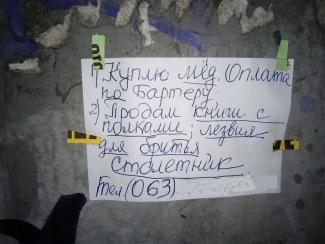 1) Куплю мёд. Оплата
по Бартеру.
2) Продам книги с
полками, лезвия
для бритья
Столетник
Тел (063)